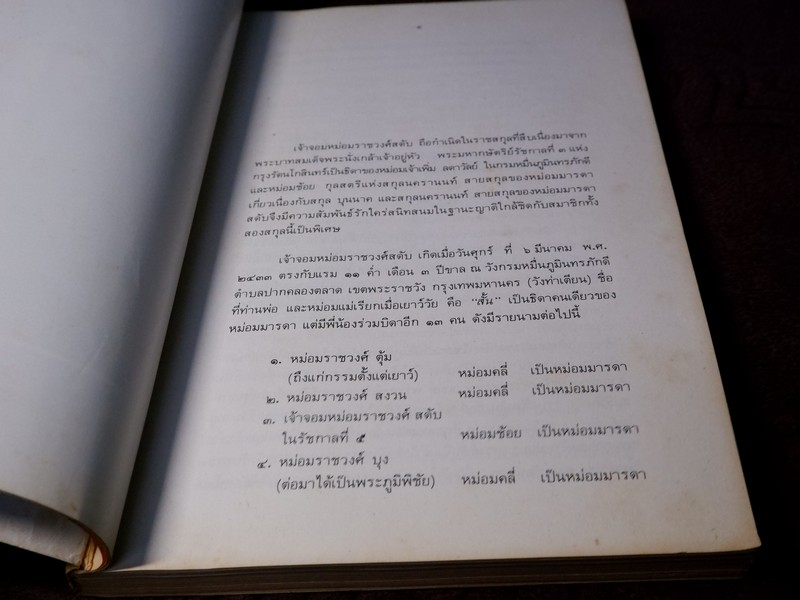 เจ้าจอมหม่อมราชวงศ์สดับ ถือกำเนิดในราชสกุลที่สืบเนื่องมาจาก
พระบาทสมเด็จพระนั่งเกล้าเจ้าอยู่หัว พระมหากษัตริย์รัชกาลที่ ๓ แห่ง
กรุงรัตนโกสินทร์เป็นธิดาของหม่อมเจ้าเพิ่ม ลดาวัลย์ ในกรมหมื่นภูมินทรภักดี
และหม่อมช้อย กุลสตรีแห่งสกุลนครานนท์ สายสกุลของหม่อมมารดา
เกี่ยวเนื่องกับสกุล บุนนาค และสกุลนครานนท์ สายสกุลของหม่อมมารดา
สดับจึงมีความสัมพันธ์รักใคร่สนิทสนมในฐานะญาติใกล้ชิดกับสมาชิกทั้ง
สองสกุลนี้เป็นพิเศษ
เจ้าจอมหม่อมราชวงศ์สดับ เกิดเมื่อวันศุกร์ ที่ ๖ มีนาคม พ.ศ.
๒๔๓๓ ตรงกับแรม ๑๑ ค่ำ เดือน ๓ ปีขาล ณ วังกรมหมื่นภูมินทรภักดี
ตำบลปากคลองตลาด เขตพระราชวัง กรุงเทพมหานคร (วังท่าเตียน) ชื่อ
ที่ท่านพ่อ และหม่อมแม่เรียกเมื่อเยาว์วัย คือ "สั้น" เป็นธิดาคนเดียวของ
หม่อมมารดา แต่มีพี่น้องร่วมบิดาอีก ๑๓ คน ดังมีรายนามต่อไปนี้
๑. หม่อมราชวงศ์ ตุ้ม
(ถึงแก่กรรมตั้งแต่เยาว์) หม่อมคลี่ เป็นหม่อมมารดา
๒. หม่อมราชวงศ์ สงวน หม่อมคลี่ เป็นหม่อมมารดา
๓. เจ้าจอมหม่อมราชวงศ์ สดับ
ในรัชกาลที่ ๕ หม่อมช้อย เป็นหม่อมมารดา
๔. หม่อมราชวงศ์ บุง
(ต่อมาได้เป็นพระภูมิพิชัย) หม่อมคลี่ เป็นหม่อมมารดา